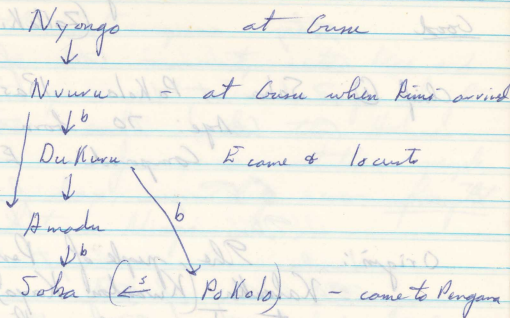 Nyongo at Gusu
↓
Nvuru - at Gusu when Rimi arrived
↓ ↓ b
DuKuru E came & locusts
↓ b
Amadu
↓ b
Soba (← s PoKolo) - came to Pengara